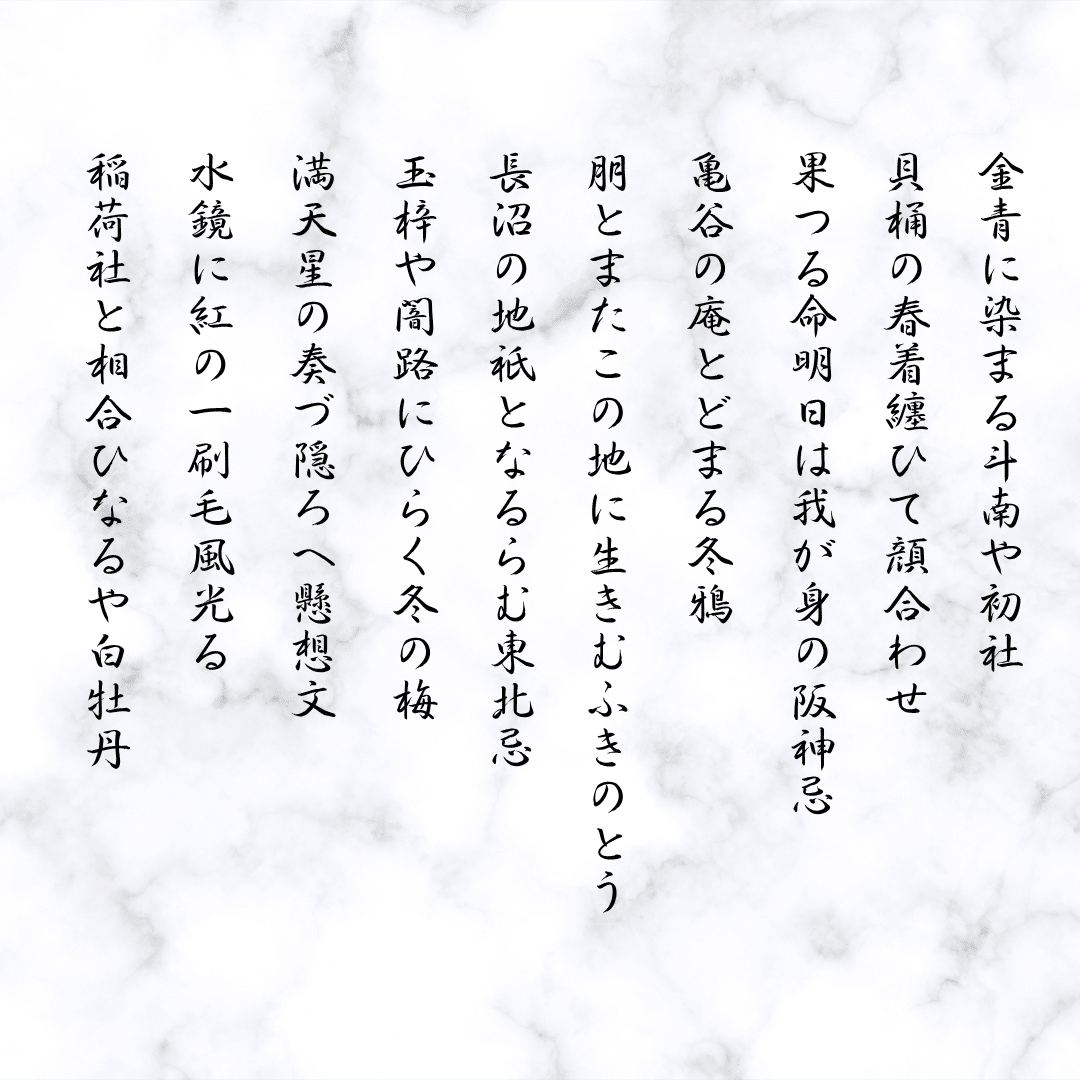 金青に染まる斗南や初社
貝桶の春着纏ひて顔合わせ
果つる命明日は我が身の阪神忌
亀谷の庵とどまる冬鴉
朋とまたこの地に生きむふきのとう
長沼の地祇となるらむ東北忌
玉梓や闇路にひらく冬の梅
満天星の奏づ隠ろへ懸想文
水鏡に紅の一刷毛風光る
稲荷社と相合ひなるや白牡丹